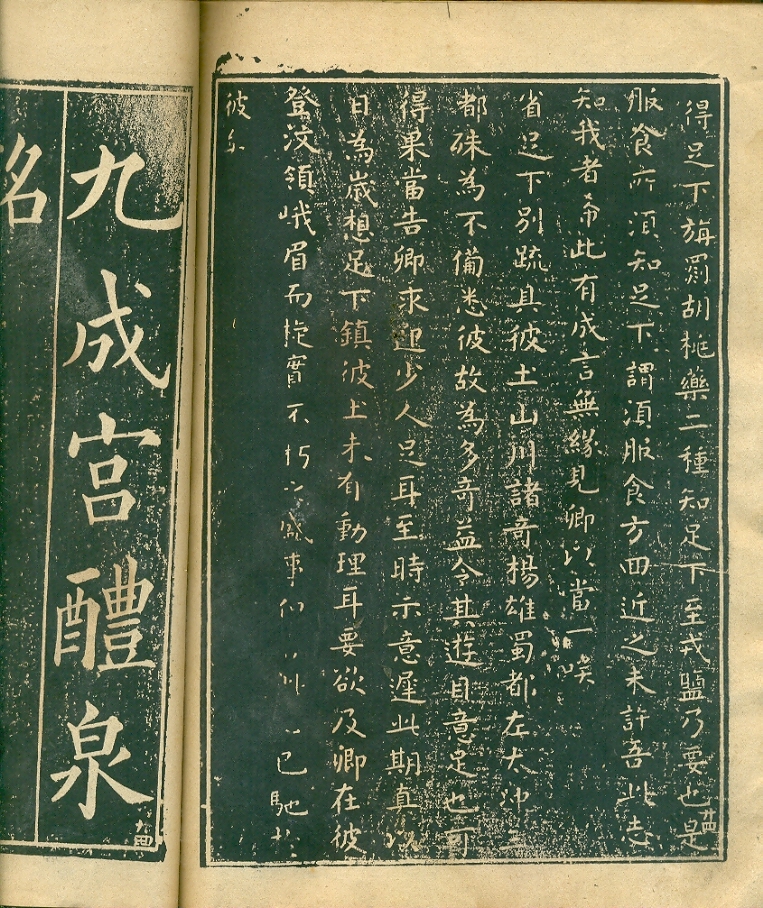 得足下旃罽胡桃藥二種知足下至戎鹽乃要也是
廿四
服食所須知足下謂須服食方回近之未許吾此志
知我者希此有成言無緣見卿以當一咲
省足下別疏具彼土山川諸奇揚雄蜀都左太沖三
都殊為不備悉彼故為多奇益令其遊目意足也可
得果當告卿求迎少人足耳至時示意遲此期真以
日為歲想足下鎮彼土未有動理耳要欲及卿在彼
登汶領峨眉而旋實不朽之盛事但已馳於
彼矣
九成宮醴泉
九四
銘